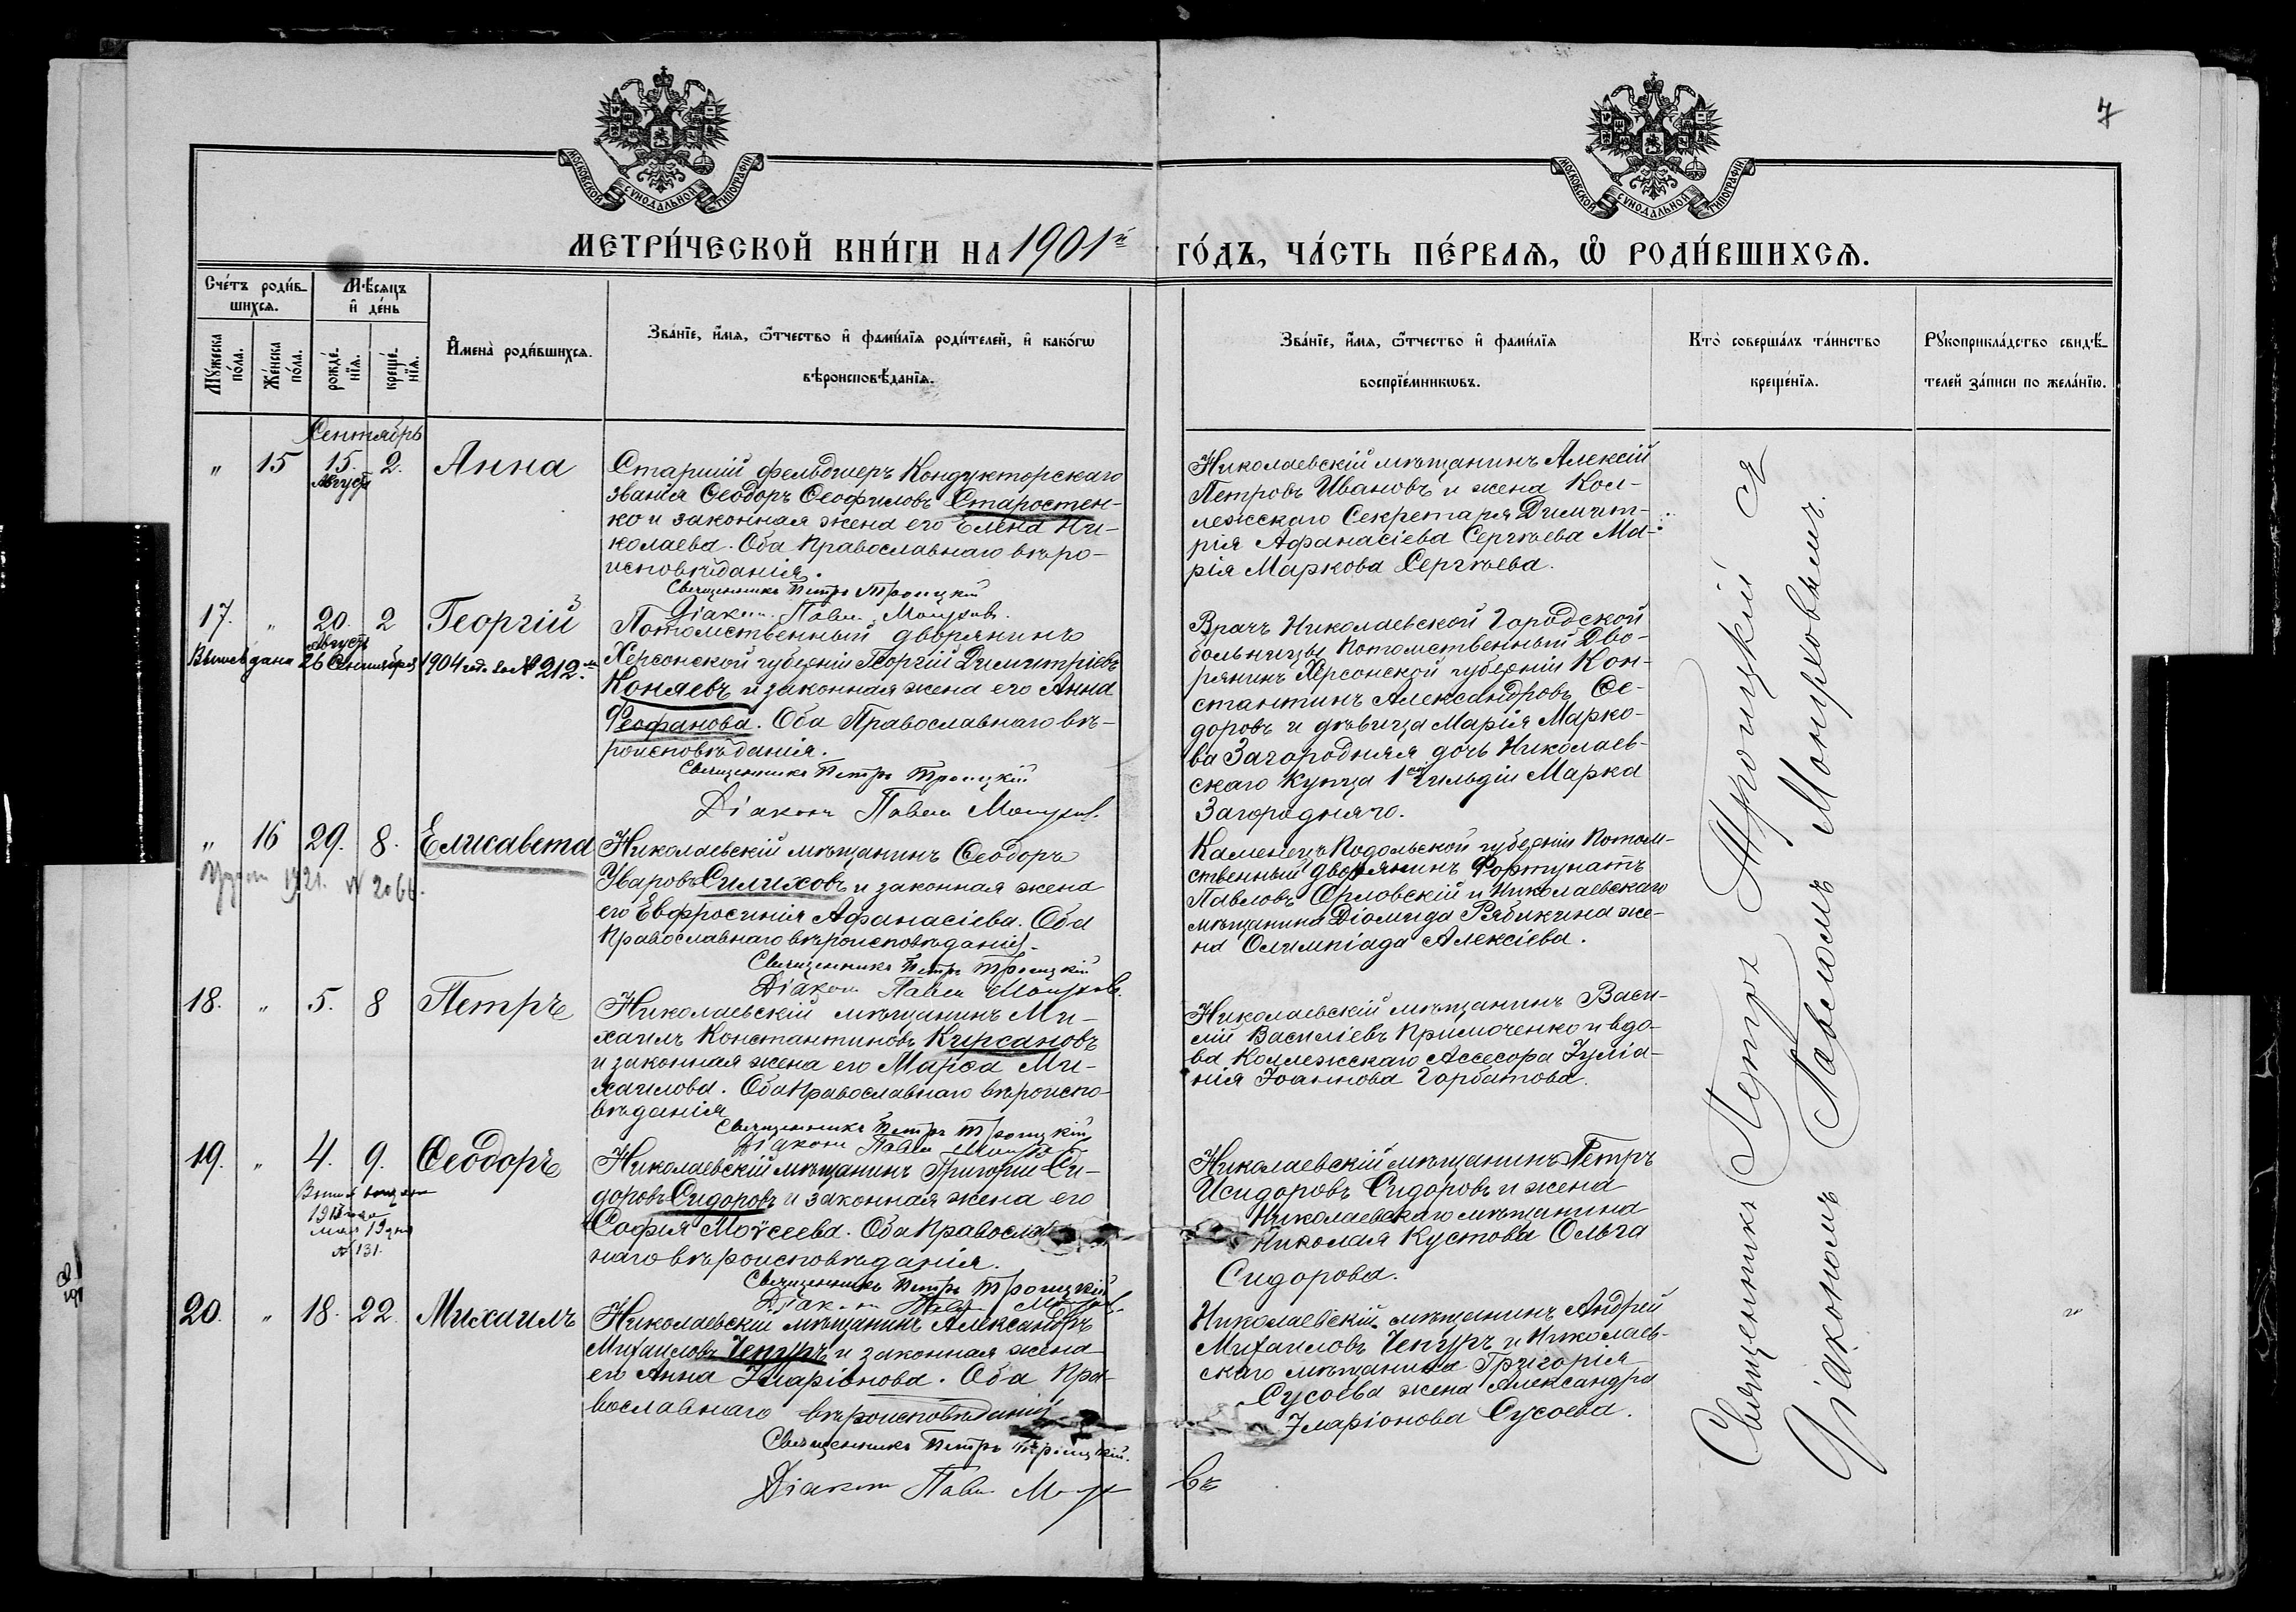 7
МОСКОВСКОЙ СѴНОДАЛЬНОЙ ТИПОГРАФІИ
МОСКОВСКОЙ СѴНОДАЛЬНОЙ ТИПОГРАФІИ
МЕТРИ́ЧЕСКОЙ КНИ́ГИ НА 1901й ГО́ДЪ, ЧА́СТЬ ПЕ́РВАѦ, Ѽ РОДИ́ВШИХСѦ.
Сче́тъ роди́в-
шихсѧ.
Мѣ́сѧцъ
и҆ де́нь
Мꙋ́жеска
по́ла.
Же́нска
по́ла.
рожде́-
нїѧ.
креще́-
нїѧ.
И҆мена̀ роди́вшихсѧ.
Зва́нїе, и҆́мѧ, ѻ҆́тчество и҆ фами́лїѧ роди́телей, и҆ како́гѡ
вѣроисповѣ́данїѧ.
Зва́нїе, и҆́мѧ, ѻ҆́тчество и҆ фами́лїѧ
воспрїе́мникѡвъ.
Кто̀ соверша́лъ та́инство
креще́нїѧ.
Рꙋкоприкла́дство свидѣ́-
телей за́писи по жела́нїю.
Сентябрь
" 15 15. 2. Анна
Августа
Старшій фельдшеръ Кондукторскаго
званія Ѳеодоръ Ѳеофиловъ Старостен-
ко и законная жена его Елена Ни-
колаева. Оба Православнаго вѣро-
исповѣданія.
Священникъ Петръ Троицкій
Діаконъ Павелъ
Николаевскій мѣщанинъ Алексій
Петровъ Ивановъ и жена Кол-
лежскаго Секретаря Димит-
рія Афанасіева Сергѣева Ма-
рія Маркова Сергѣева.
17. " 20. 2 Георгій
Августа
Выпись дана 26 Сентября 1904 год. за № 212.
Потомственный дворянинъ
Херсонской губерніи Георгій Димитріевъ
Коняевъ и законная жена его Анна
Ѳеофанова. Оба Православнаго вѣ-
роисповѣданія.
Священникъ Петръ Троицкій
Діаконъ Павелъ
Врачъ Николаевской Городской
больницы Потомственный Дво-
рянинъ Херсонской губерніи Кон-
стантинъ Александровъ Ѳе-
доровъ и дѣвица Марія Марко-
ва Загородняя дочь Николаев-
скаго Купца 1ой гильдіи Марка
Загородняго.
" 16 29. 8. Елисавета
1921. № 2066.
Николаевскій мѣщанинъ Ѳеодоръ
Уваровъ Силиховъ и законная жена
его Евфросинія Афанасіева. Оба
Православнаго вѣроисповѣданія.
Священникъ Петръ Троицкій
Діаконъ Павелъ
Каменецъ Подольской губерніи Потом-
ственный дворянинъ Фортунатъ
Павловъ Орловскій и Николаевскаго
мѣщанина Діомида Рябикина же-
на Олимпіада Алексіева.
18. " 5. 8 Петръ
Николаевскій мѣщанинъ Ми-
хаилъ Константиновъ Кирсановъ
и законная жена его Марѳа Ми-
хаилова. Оба Православнаго вѣроиспо-
вѣданія
Священникъ Петръ Троицкій
Діаконъ Павелъ
Николаевскій мѣщанинъ Васи-
лій Василіевъ Примоченко и вдо-
ва Коллежскаго Ассесора Іуліа-
нія Іоаннова Горбатова.
19. " 4. 9. Ѳеодоръ
мая 19 дня
№ 131.
Николаевскій мѣщанинъ Григорій Си-
доровъ Сидоровъ и законная жена его
Софія Моѵсеева. Оба Православ-
наго вѣроисповѣданія.
Священникъ Петръ Троицкій
Діаконъ Павелъ
Николаевскій мѣщанинъ Петръ
Исидоровъ Сидоровъ и жена
Николаевскаго мѣщанина
Николая Кустова Ольга
Сидорова.
20. " 18. 22. Михаилъ
Николаевскій мѣщанинъ Александръ
Михаиловъ Чепуръ и законная жена
его Анна Иларіонова. Оба Пра-
вославнаго вѣроисповѣданія
Священникъ Петръ Троицкій.
Діаконъ Павелъ
Николаевскій мѣщанинъ Андрей
Михаиловъ Чепуръ и Николаев-
скаго мѣщанина Григорія
Сусоева жена Александра
Иларіонова Сусоева.
въ
Священникъ Петръ Троицкій съ
Діакономъ Павломъ